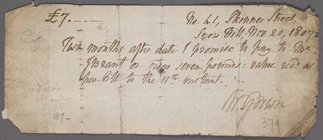 £7.—.— No. 41, Skinner Street
Snow Hill, Nov. 20, 1807
Two months after date I promise to pay to Mr
or order seven pounds: value recd as
per bill to the 11th instant.
W Godwin